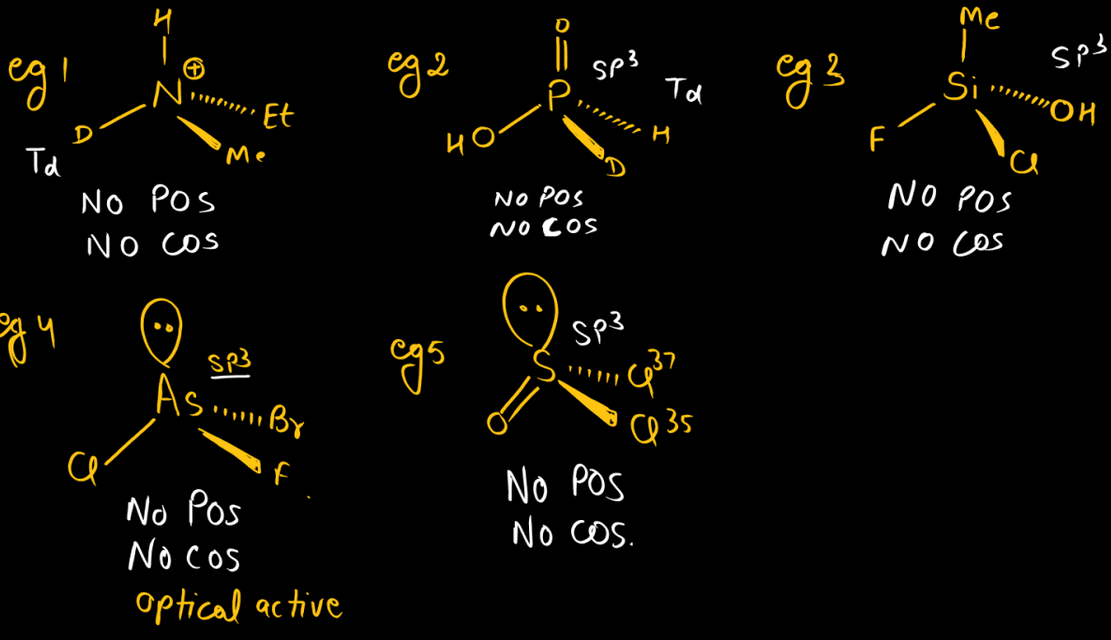 eg 1
H
N⊕
D
Et
Me
Td
NO POS
NO COS
eg 2
O
P
SP³
Td
HO
H
D
NO POS
NO COS
eg 3
Me
Si
SP³
F
OH
Cl
NO POS
NO COS
eg 4
As
SP³
Cl
Br
F
No POS
No COS
optical active
eg5
S
SP³
O
Cl³⁷
Cl³⁵
No POS
No COS.